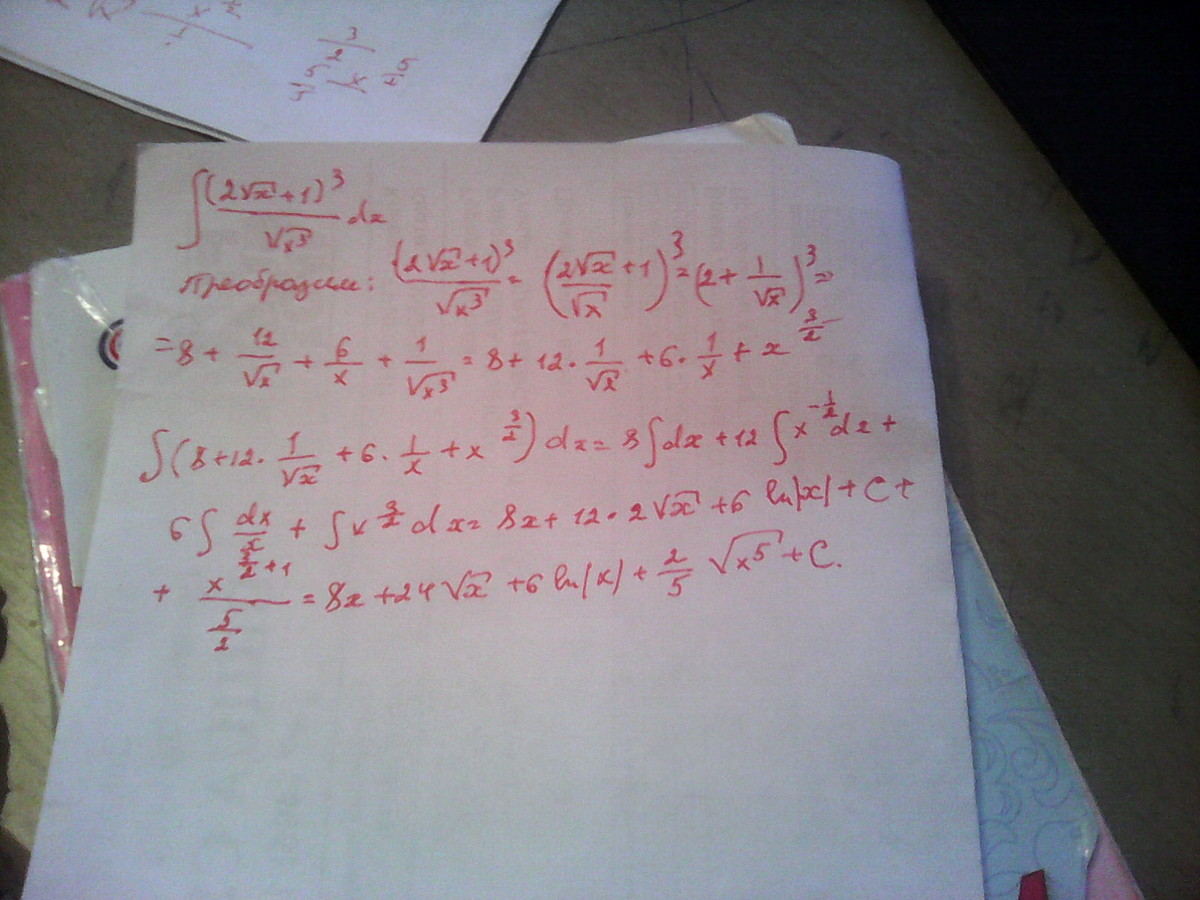 ∫ (2√x + 1)³ / √x³ dx
Преобразуем: (2√x + 1)³ / √x³ = (2√x + 1 / √x)³ = (2 + 1/√x)³ =
= 8 + 12/√x + 6/x + 1/√x³ = 8 + 12 · 1/√x + 6 · 1/x + x^(3/2)
∫ (8 + 12 · 1/√x + 6 · 1/x + x^(3/2)) dx = 8 ∫ dx + 12 ∫ x^(-1/2) dx +
6 ∫ dx/x + ∫ x^(3/2) dx = 8x + 12 · 2√x + 6 ln|x| + C +
+ x^(3/2 + 1) / (5/2) = 8x + 24√x + 6 ln|x| + 2/5 √x⁵ + C.